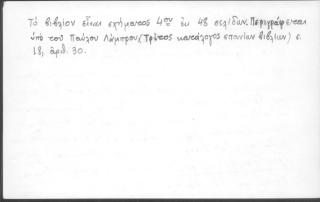 Τὸ βιβλίον εἶναι σχήματος 4ου ἐκ 48 σελίδων. Περιγράφεται
ὑπὸ τοῦ Παύλου Λάμπρου (Τρίτος κατάλογος σπανίων βιβλίων) σ.
18, ἀριθ. 30.